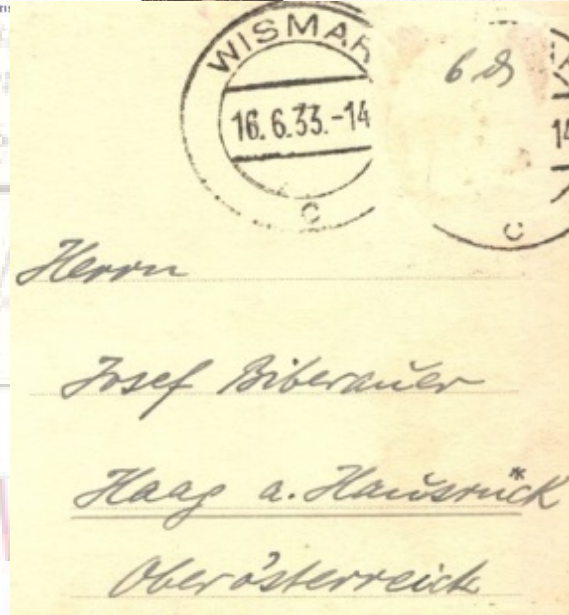 WISMAR
16.6.33.-14
c
6 ₰
14
c
Herrn
Josef Biberauer
Haag a. Hausrück
Oberösterreich